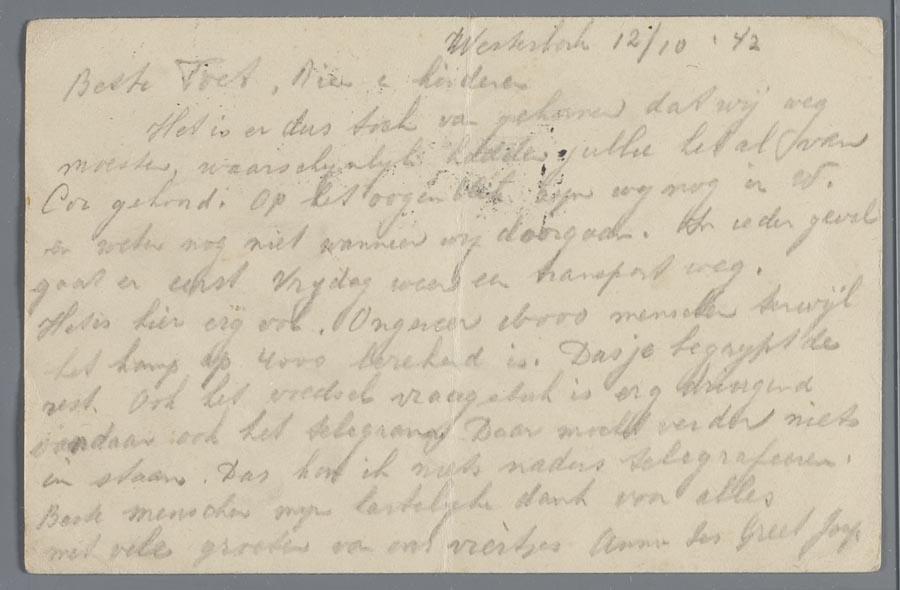 Westerbork 12/10 '42
Beste Toet, Rie & kinderen
Het is er dus toch van gekomen dat wij weg
moesten, waarschynlyk hadden jullie het al van
Cor gehoord. Op het oogenblik zyn wy nog in W.
en weten nog niet wanneer wy doorgaan. In ieder geval
gaat er eerst Vrydag weer een transport weg.
Het is hier erg vol. Ongeveer 16000 menschen terwijl
het kamp op 4000 berekend is. Dus je begrypt de
rest. Ook het voedsel vraagstuk is erg dringend
vandaar ook het telegram. Daar mocht verder niets
in staan. Dus kon ik niets naders telegrafeeren.
Beste menschen myn hartelyke dank voor alles
met vele groeten van ons viertjes Anna Greet Jaap